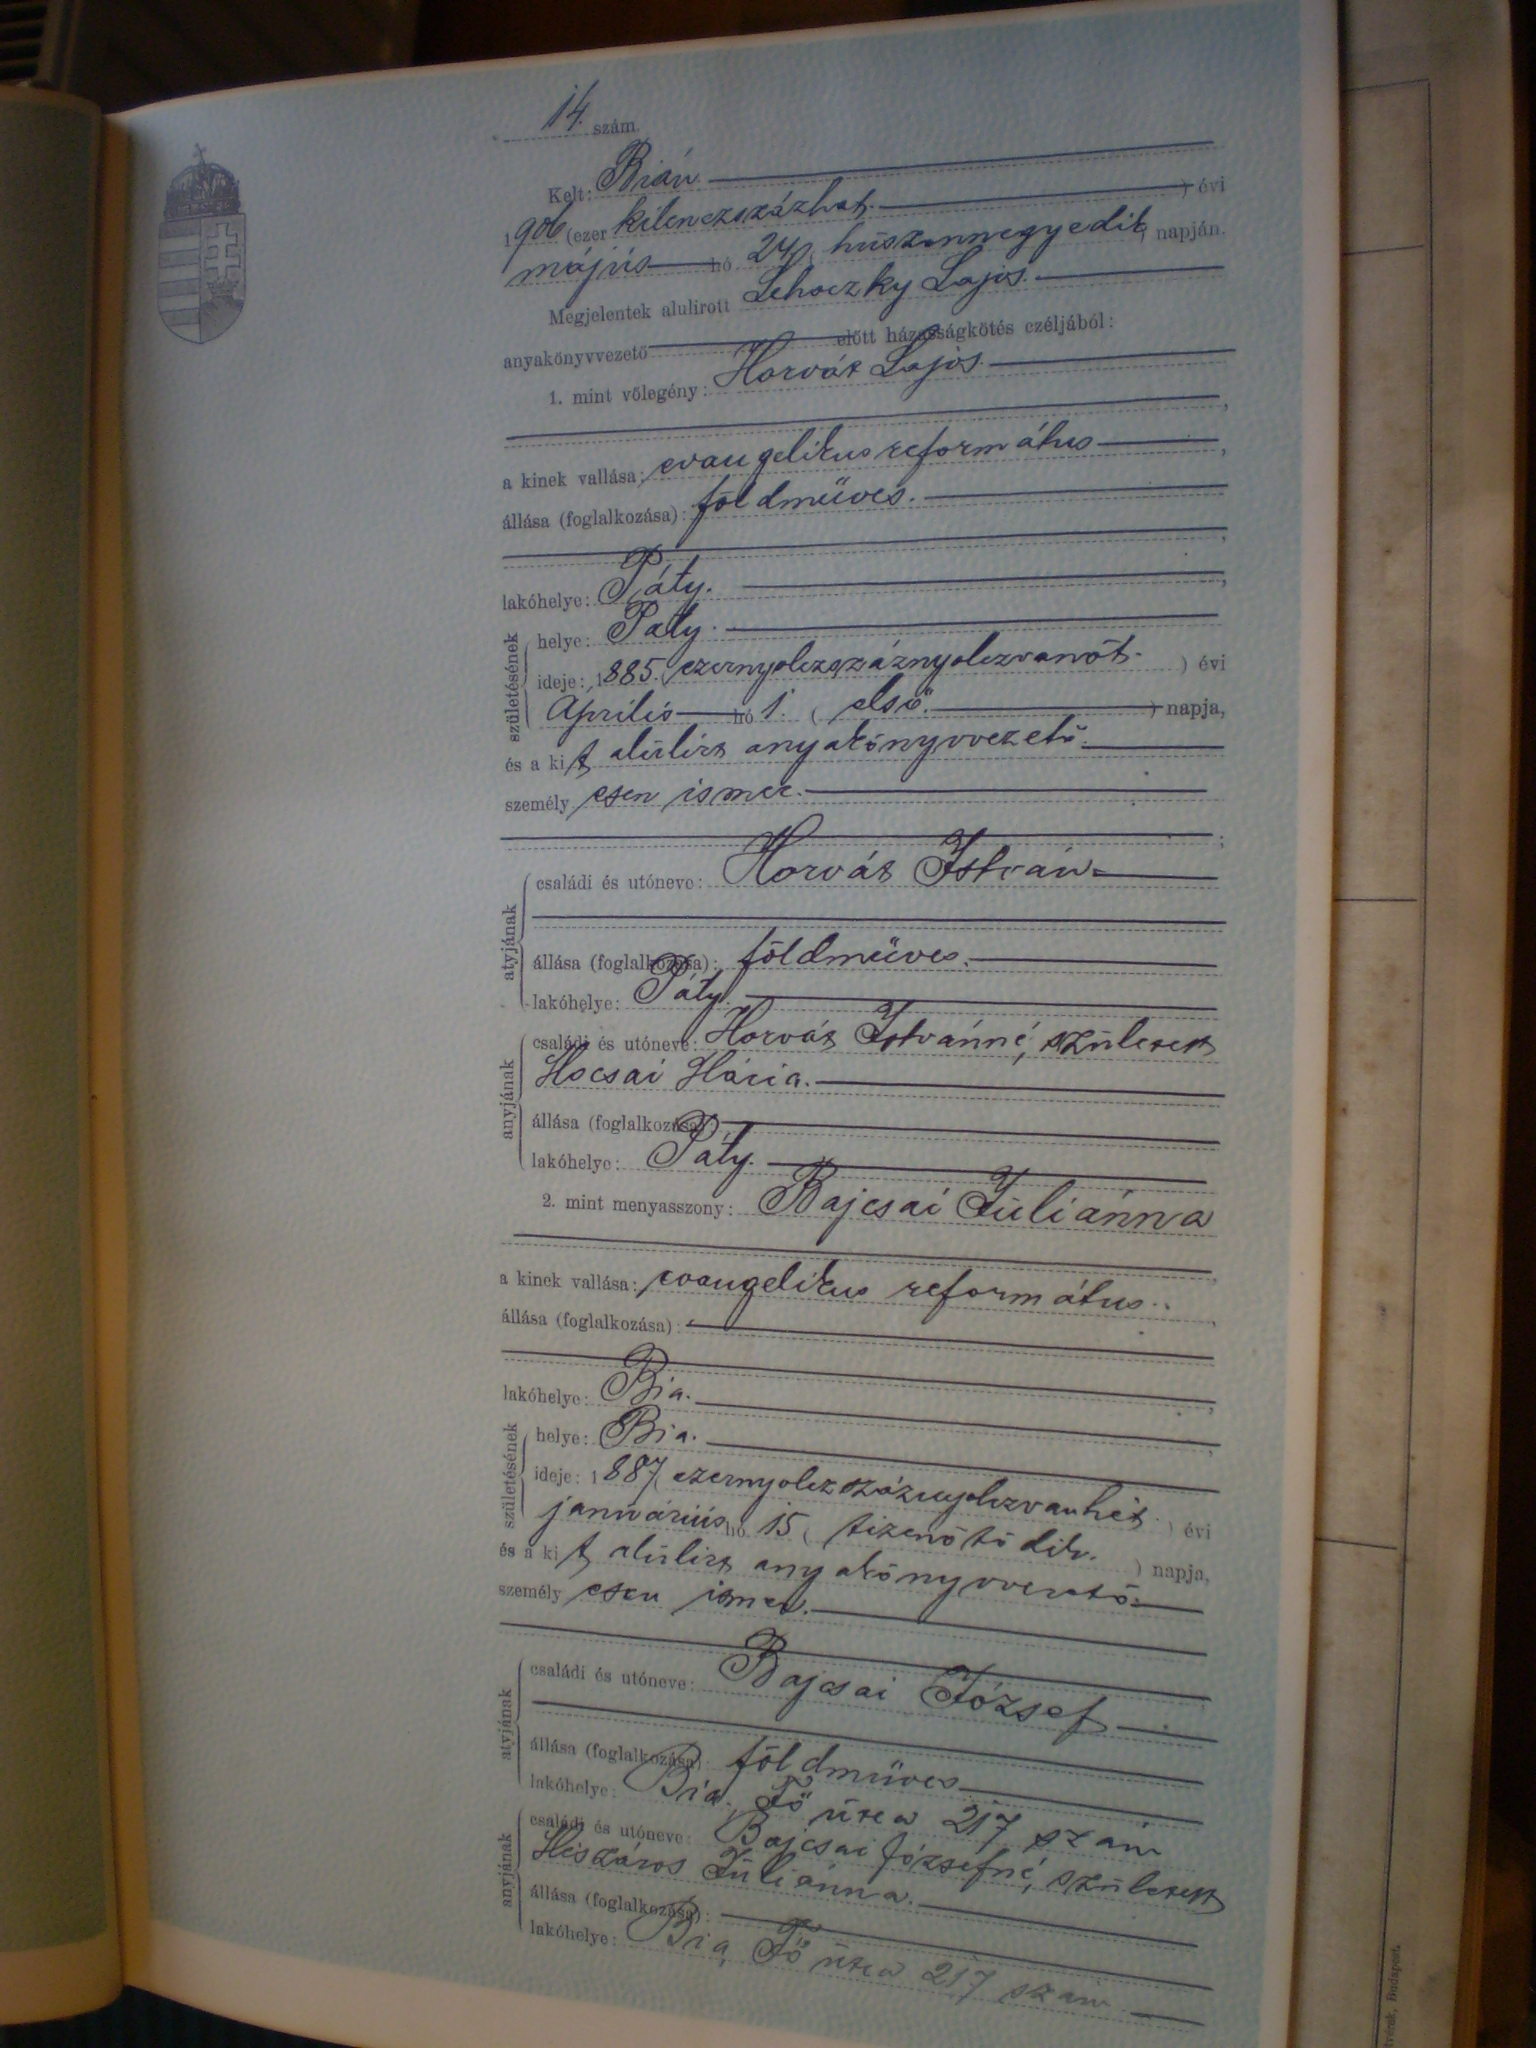 14. szám.
Kelt: Bián
1906 (ezer kilenczszázhat. ) évi
május hó 24 ( huszonnegyedik ) napján.
Megjelentek alulirott Lehoczky Lajos.
anyakönyvvezető előtt házasságkötés czéljából:
1. mint vőlegény: Horvát Lajos.
a kinek vallása: evangelikus református
állása (foglalkozása): földmüves.
lakóhelye: Páty.
születésének
helye: Páty.
ideje: 1885. (ezernyolczszáznyolczvanöt. ) évi
április hó 1. ( első. ) napja,
és a kit alulirt anyakönyvvezető
személyesen ismer.
atyjának
családi és utóneve: Horvát István
állása (foglalkozása): földmüves.
lakóhelye: Páty.
anyjának
családi és utóneve: Horvát Istvánné, született
Mocsai Mária.
állása (foglalkozása):
lakóhelye: Páty.
2. mint menyasszony: Bajcsai Juliánna
a kinek vallása: evangelikus református.
állása (foglalkozása):
lakóhelye: Bia.
születésének
helye: Bia.
ideje: 1887 (ezernyolczszáznyolczvanhét ) évi
január​ius hó 15 ( tizenötödik. ) napja,
és a kit alulirt anyakönyvvezető
személyesen ismer.
atyjának
családi és utóneve: Bajcsai József
állása (foglalkozása): földmüves
lakóhelye: Bia. Fő utca 217 szám
anyjának
családi és utóneve: Bajcsai Józsefné, született
Mészáros Juliánna.
állása (foglalkozása):
lakóhelye: Bia, Fő utca 217 szám